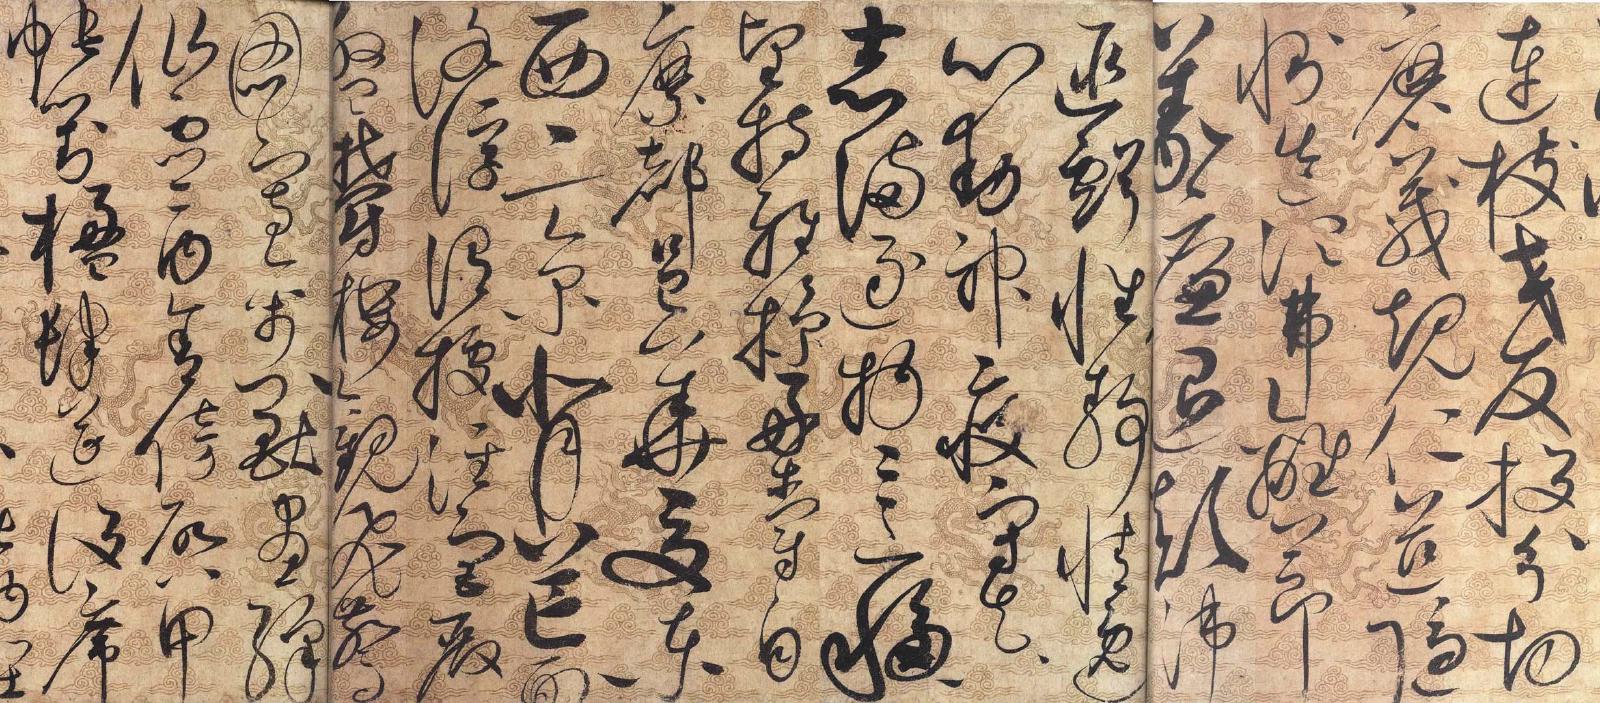 連枝交友投分切
磨箴規仁慈隱
惻造次弗離節
義廉退顛沛
匪虧性靜情逸
心動神疲守真
志滿逐物意移
堅持雅操好爵自
縻都邑華夏東
西二京背邙面
洛浮渭據涇宮殿
盤鬱樓觀飛驚
圖寫禽獸畫綵
仙靈丙舍傍啟甲
帳對楹肆筵設席